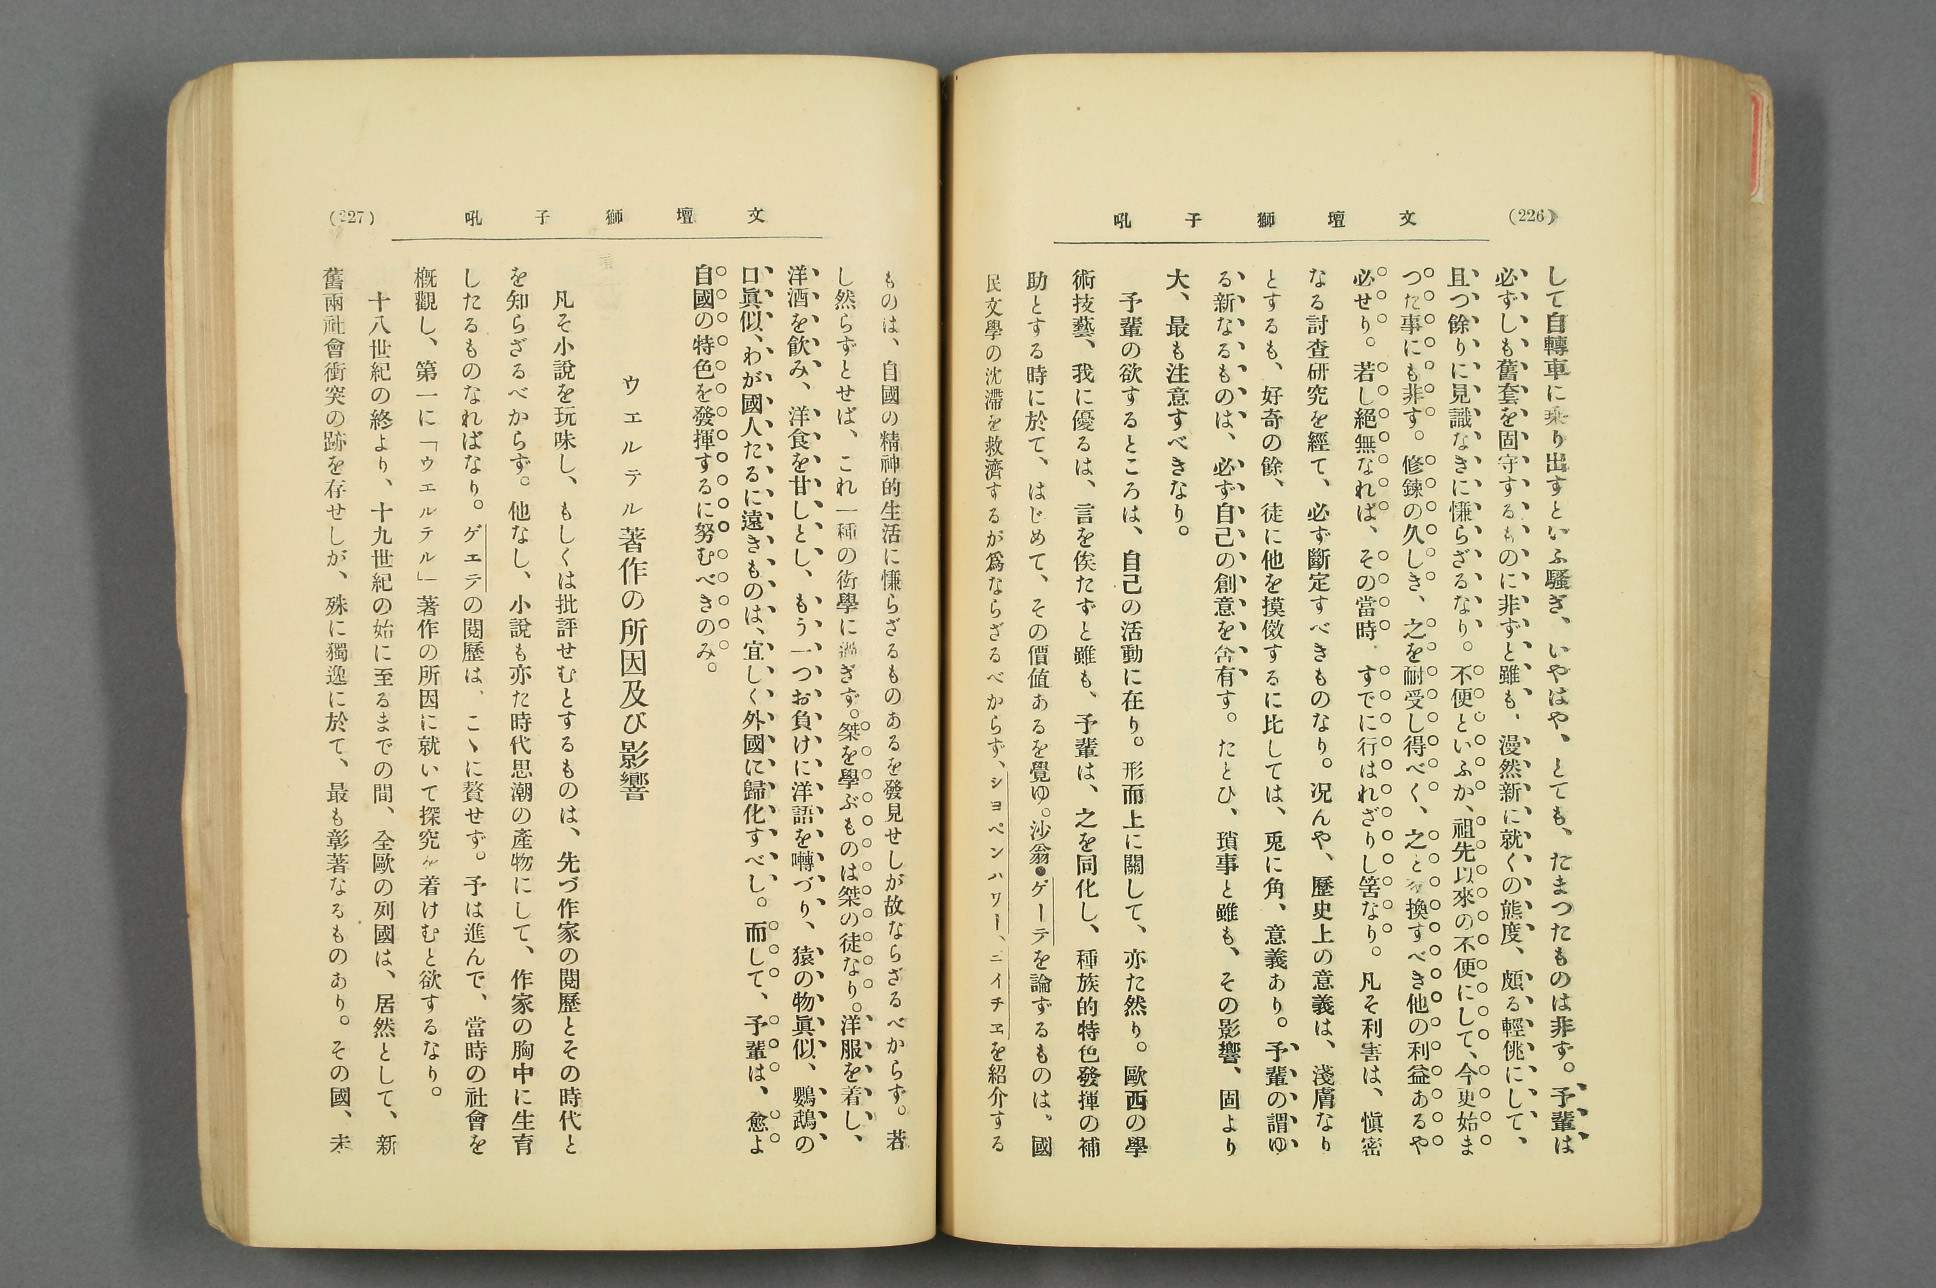 (226)
文壇獅子吼
して自轉車に乘り出すといふ騷ぎ、いやはや、とても、たまつたものは非ず。予輩は
必ずしも舊套を固守するものに非ずと雖も、漫然新に就くの態度、頗る輕佻にして、
且つ餘りに見識なきに慊らざるなり。不便といふか、祖先以來の不便にして、今更始ま
つた事にも非す。修鍊の久しき、之を耐受し得べく、之と換すべき他の利益あるや
必せり。若し絕無なれば、その當時、すでに行はれざりし筈なり。凡そ利害は、愼密
なる討查研究を經て、必ず斷定すべきものなり。况んや、歷史上の意義は、淺膚なり
とするも、好奇の餘、徒に他を摸倣するに比しては、兎に角、意義あり。予輩の謂ゆ
る新なるものは、必ず自己の創意を含有す。たとひ、瑣事と雖も、その影響、固より
大、最も注意すべきなり。
予輩の欲するところは、自己の活動に在り。形而上に關して、亦た然り。歐西の學
術技藝、我に優るは、言を俟たずと雖も、予輩は、之を同化し、種族的特色發揮の補
助とする時に於て、はじめて、その價値あるを覺ゆ。沙翁●ゲーテを論ずるものは、國
民文學の沈滯を救濟するが爲ならざるべからず、シヨペンハワー、ニイチヱを紹介する
(227)
文壇獅子吼
ものは、自國の精神的生活に慊らざるものあるを發見せしが故ならざるべからず。若
し然らずとせば、これ一種の衒學に過ぎず。桀を學ぶものは桀の徒なり。洋服を着し、
洋酒を飮み、洋食を甘しとし、もう一つお負けに洋語を囀づり、猿の物眞似、鸚鵡の
口眞似、わが國人たるに遠きものは、宜しく外國に歸化すべし。而して、予輩は、愈よ
自國の特色を發揮するに努むべきのみ。
ウエルテル著作の所因及び影響
凡そ小說を玩味し、もしくは批評せむとするものは、先づ作家の閱歷とその時代と
を知らざるべからず。他なし、小說も亦た時代思潮の產物にして、作家の胸中に生育
したるものなればなり。ゲエテの閱歷は、こゝに贅せず。予は進んで、當時の社會を
槪觀し、第一に「ウエルテル」著作の所因に就いて探究を着けむと欲するなり。
十八世紀の終より、十九世紀の始に至るまでの間、全歐の列國は、居然として、新
舊兩社會衝突の跡を存せしが、殊に獨逸に於て、最も彰著なるものあり。その國、未